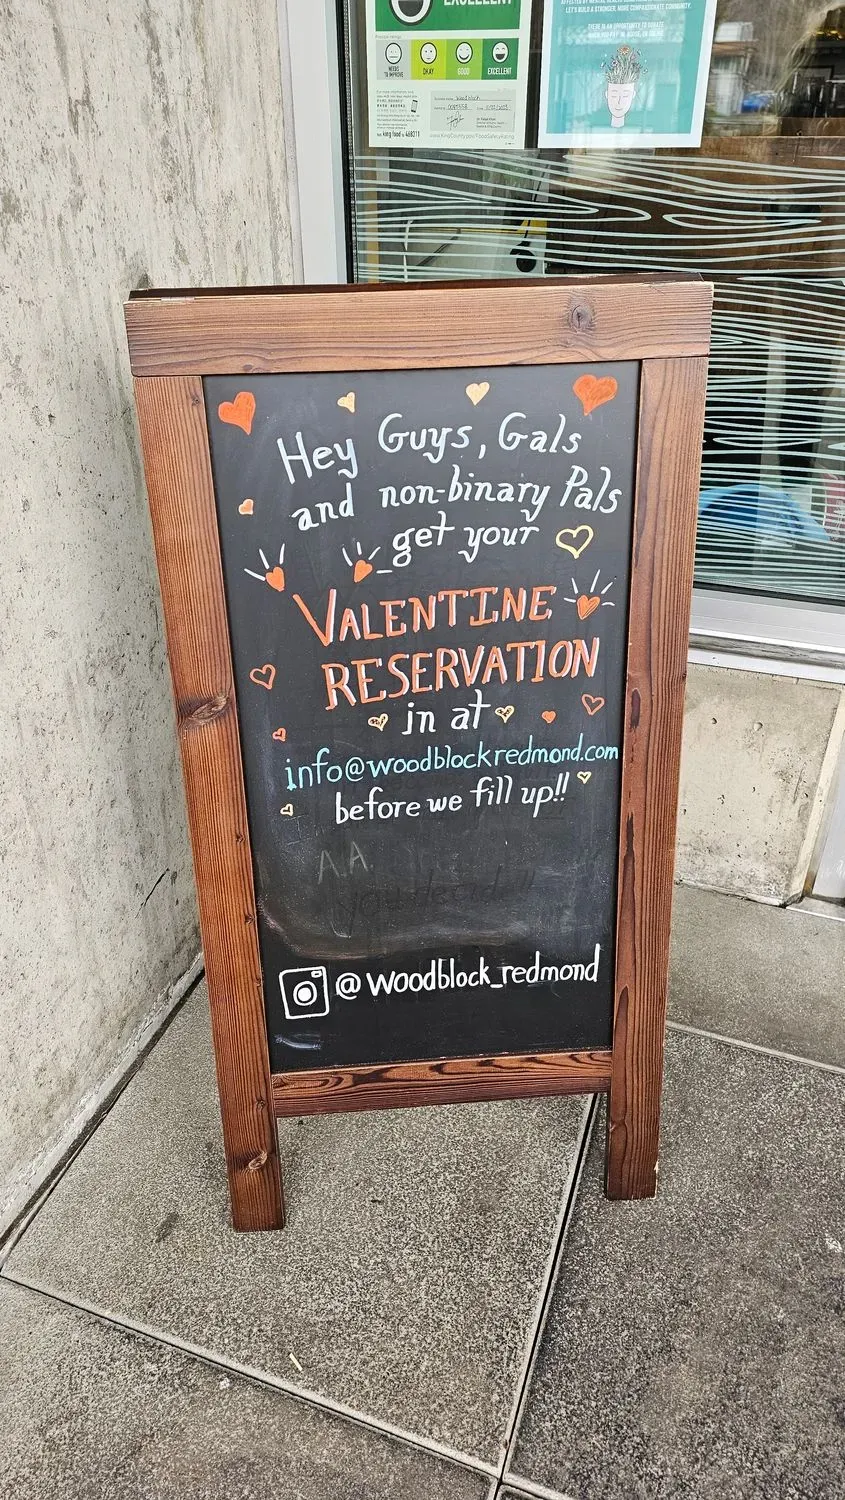 EXCELLENT
NEEDS TO IMPROVE
OKAY
GOOD
EXCELLENT
AFFECTED BY MENTAL HEALTH
LET'S BUILD A STRONGER, MORE COMPASSIONATE COMMUNITY.
THERE IS AN OPPORTUNITY TO DONATE
WHEN YOU PAY IN-HOUSE, OR ONLINE.
Hey Guys, Gals
and non-binary Pals
get your
VALENTINE
RESERVATION
in at
info@woodblockredmond.com
before we fill up!!
A.A.
you decide!!
@woodblock_redmond